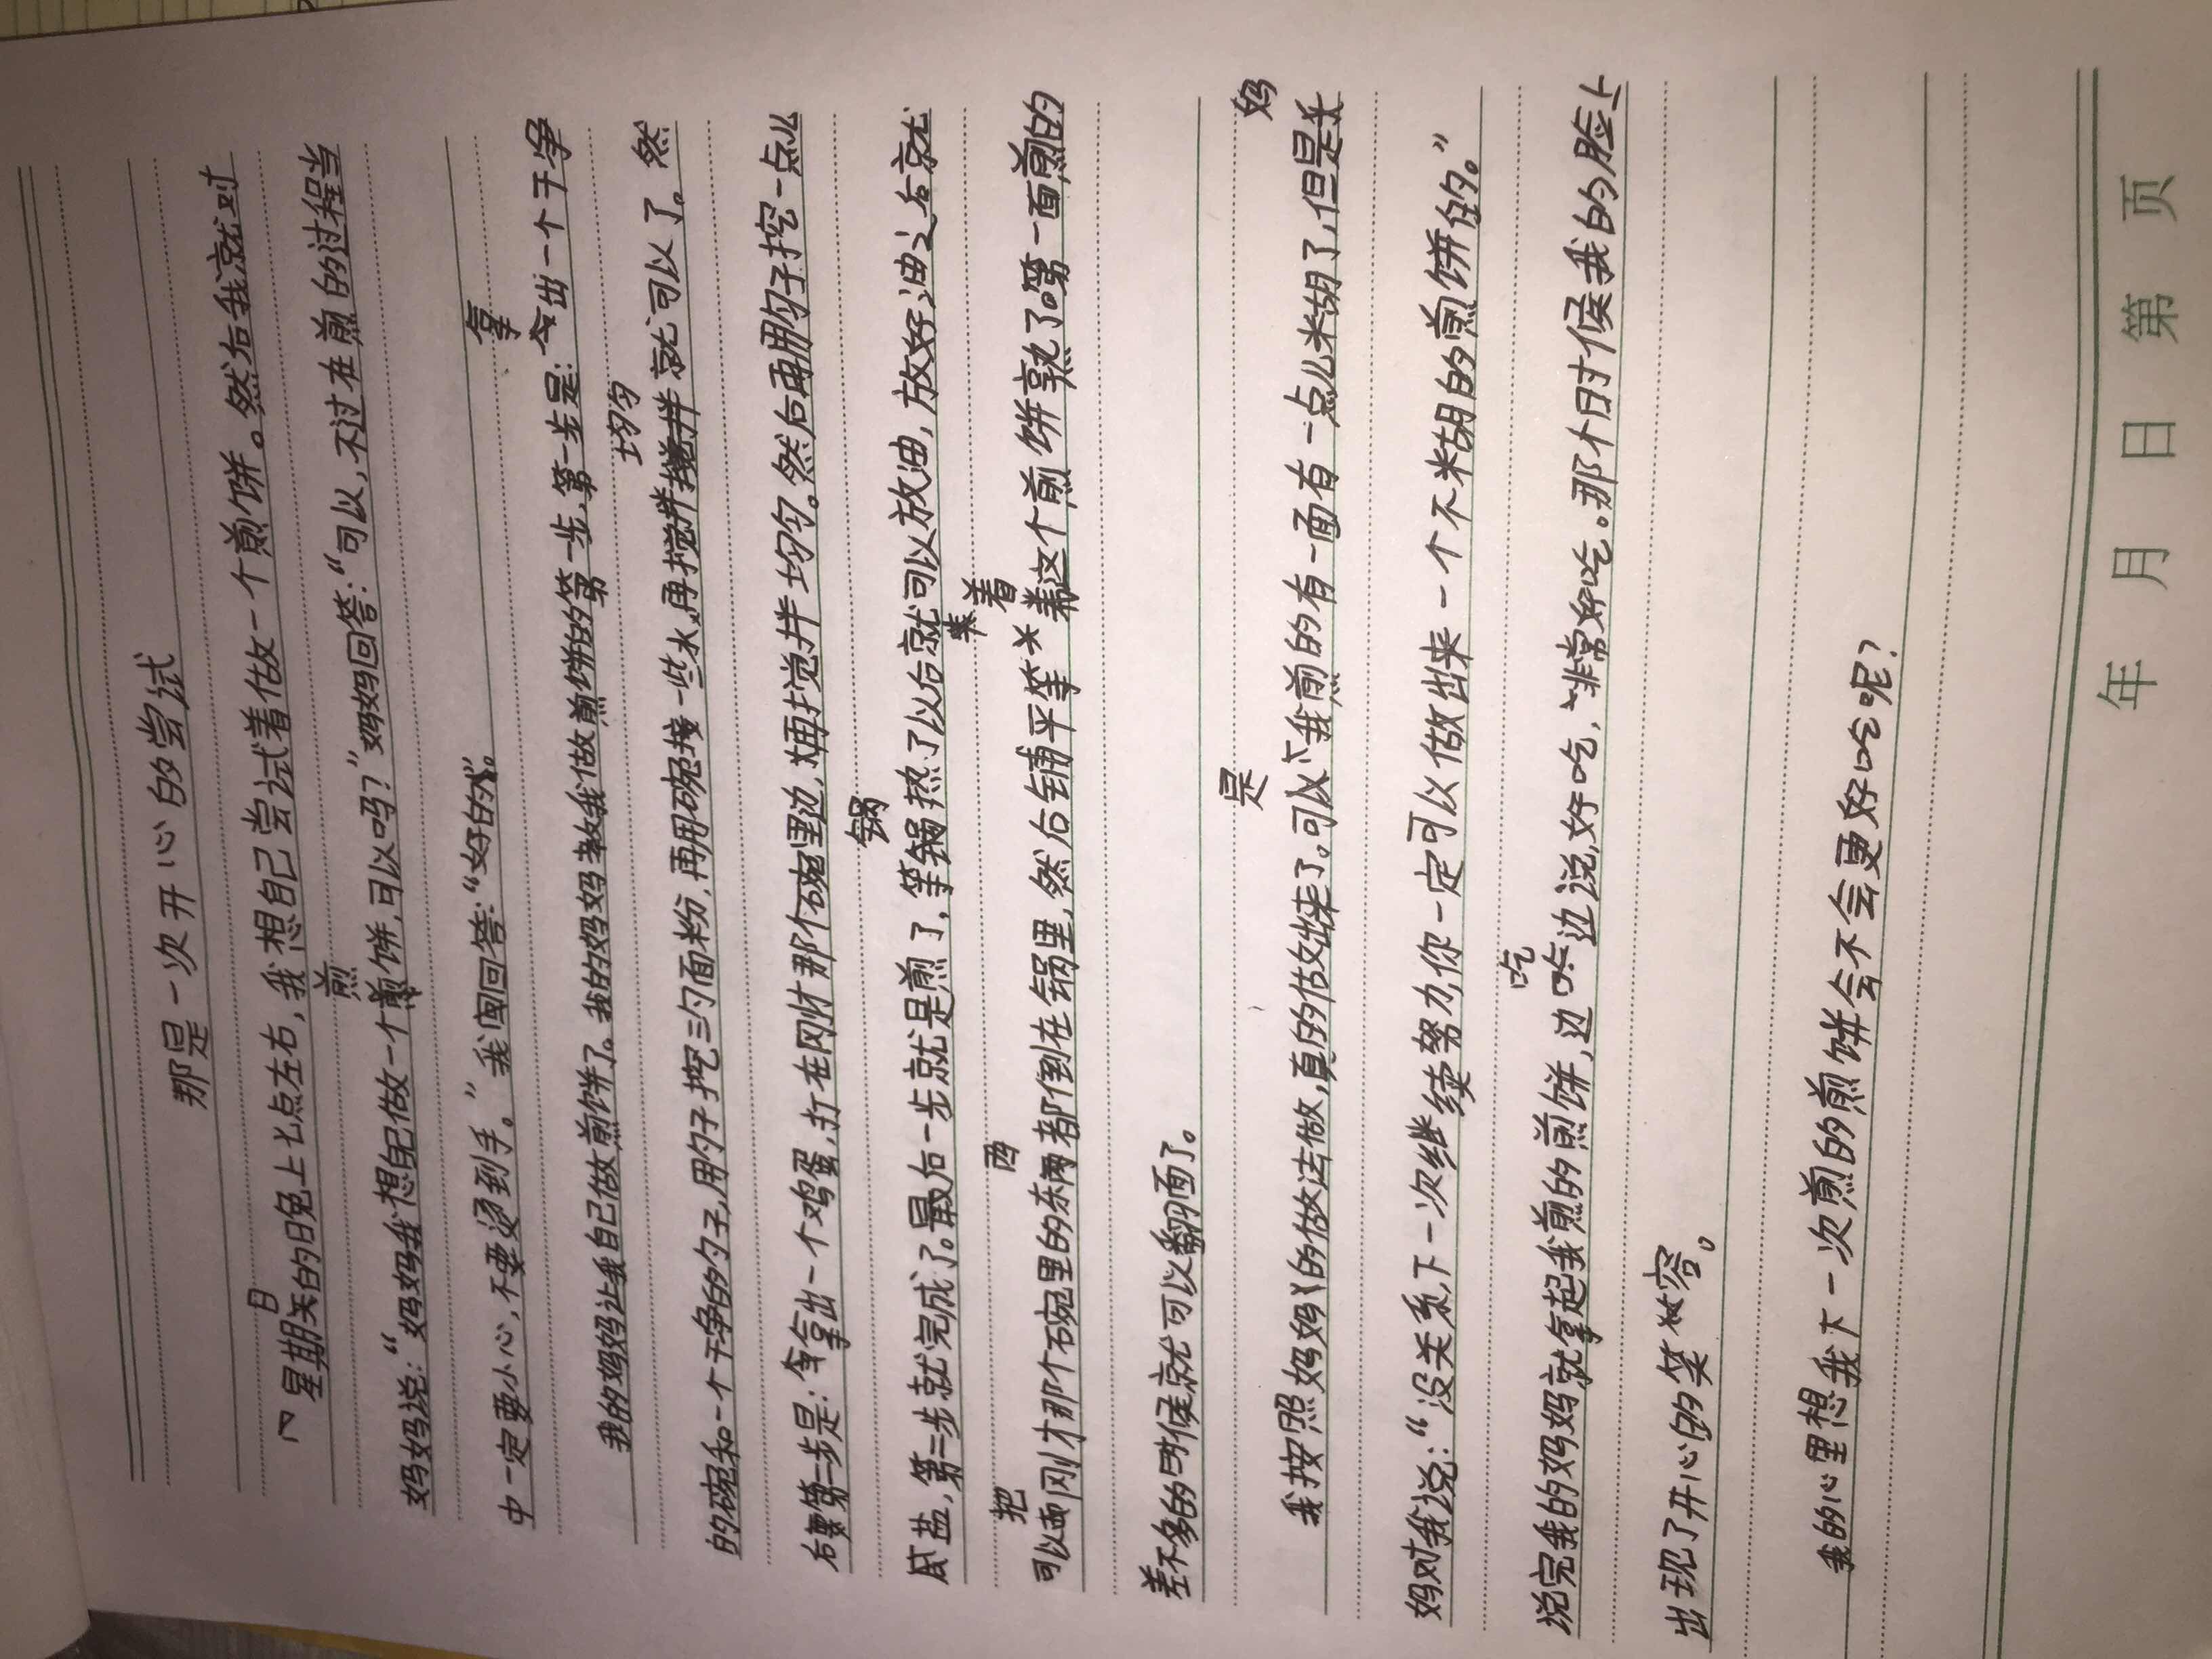 那是一次开心的尝试
星期日的晚上七点左右，我想自己尝试着做一个煎饼。然后我就对
妈妈说：“妈妈我想自己做一个煎饼，可以吗？”妈妈回答：“可以，不过在煎的过程当
中一定要小心，不要烫到手。”我回答：“好的”。
我的妈妈让我自己做煎饼了。我的妈妈教我做煎饼的第一步，第一步是：拿出一个干净
的碗和一个干净的勺子，用勺子挖三勺面粉，再用碗接一些水，再搅拌均匀就可以了。然
后第二步是：拿出一个鸡蛋，打在刚才那个碗里边，再搅拌均匀。然后再用勺子挖一点么
盐，第三步就完成了。最后一步就是煎了，等锅热了以后就可以放油，放好油之后就
可以把刚才那个碗里的东西都倒在锅里，然后铺平等着这个煎饼熟了。第一面煎的
差不多的时候就可以翻面了。
我按照妈妈的做法去做，真的做出来了。可是我煎的有一面有一点么糊了，但是妈
妈对我说：“没关系，下一次继续努力，你一定可以做出来一个不糊的煎饼的。”
说完我的妈妈就拿起我煎的煎饼，边吃边说，好吃，非常好吃。那个时候我的脸上
出现了开心的笑容。
我的心里想我下一次煎的煎饼会不会更好吃呢？
年 月 日 第 页